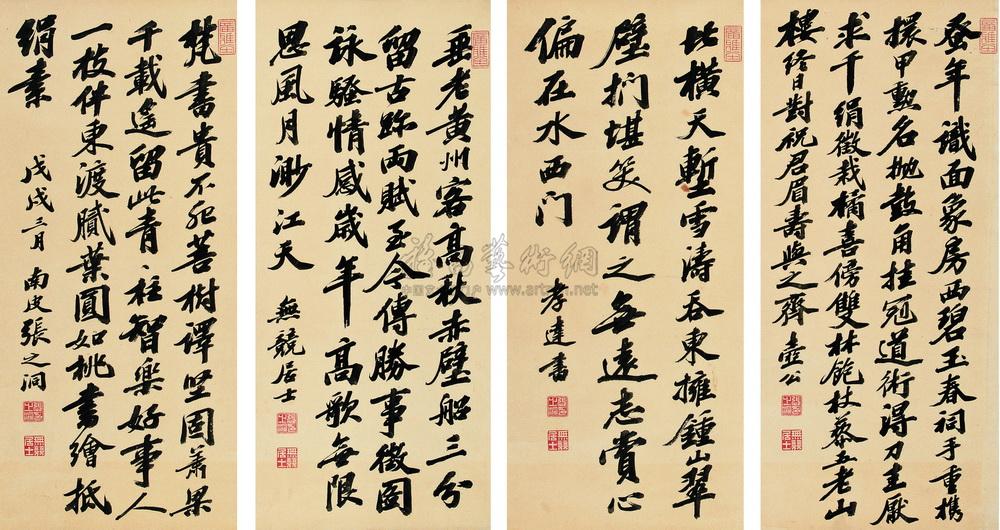 登年識面象房西碧玉春祠手重攜
擐甲勳名拋鼓角挂冠道術得刀圭厭
求千絹徵栽橘喜傍雙林飽杖藜五老山
樓終日對祝君眉壽與之齊 壺公
此橫天塹雪濤吞東擁鍾山翠
壁捫堪笑謂之無遠志賞心
偏在水西門 孝達書
亞老黃州客高秋赤壁船三分
留古跡兩賦至今傳勝事徵圖
詠騷情感歲年高歌無限
思風月渺江天 無競居士
梵書貴不死菩樹譯堅固蕭梁
千載遙留此青柱智藥好事人
一枝伴東渡膩葉圓如桃書繪抵
絹素 戊戌三月 南皮張之洞